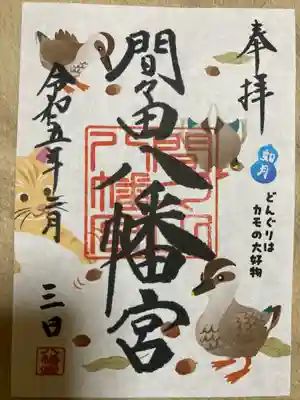 奉拝
如月
どんぐりは
カモの大好物
間々田八幡宮
令和五年二月
三日